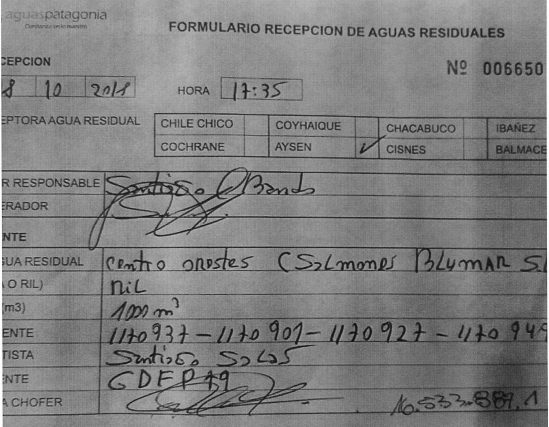 aguaspatagonia
FORMULARIO RECEPCION DE AGUAS RESIDUALES
CEPCION
Nº 006650
8 10 2018 HORA 17:35
EPTORA AGUA RESIDUAL CHILE CHICO COYHAIQUE CHACABUCO IBAÑEZ
COCHRANE AYSEN ✓ CISNES BALMACE
R RESPONSABLE Santiago OBando
ERADOR
NTE
GUA RESIDUAL Centro orestes (Salmones BLUMAR S.
O RIL) RiL
(m3) 1000 m³
ENTE 1170937-1170901-1170927-1170949
TISTA Santiago Salas
ENTE GDFP79
A CHOFER 16.533.889.1